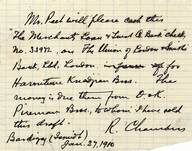 Mr. Pash will please cash this
"The Merchants Loan & Trust Co. Bank check,
no. 33972, on The Union of London & Smith's
Bank, Ltd. London, in favor of
Haroutune Bros. The
money is due them from D. K.
Bros. to whom I have sold
this draft.
R. Chambers
Bardizag (Ismidt)
Jan. 27, 1910